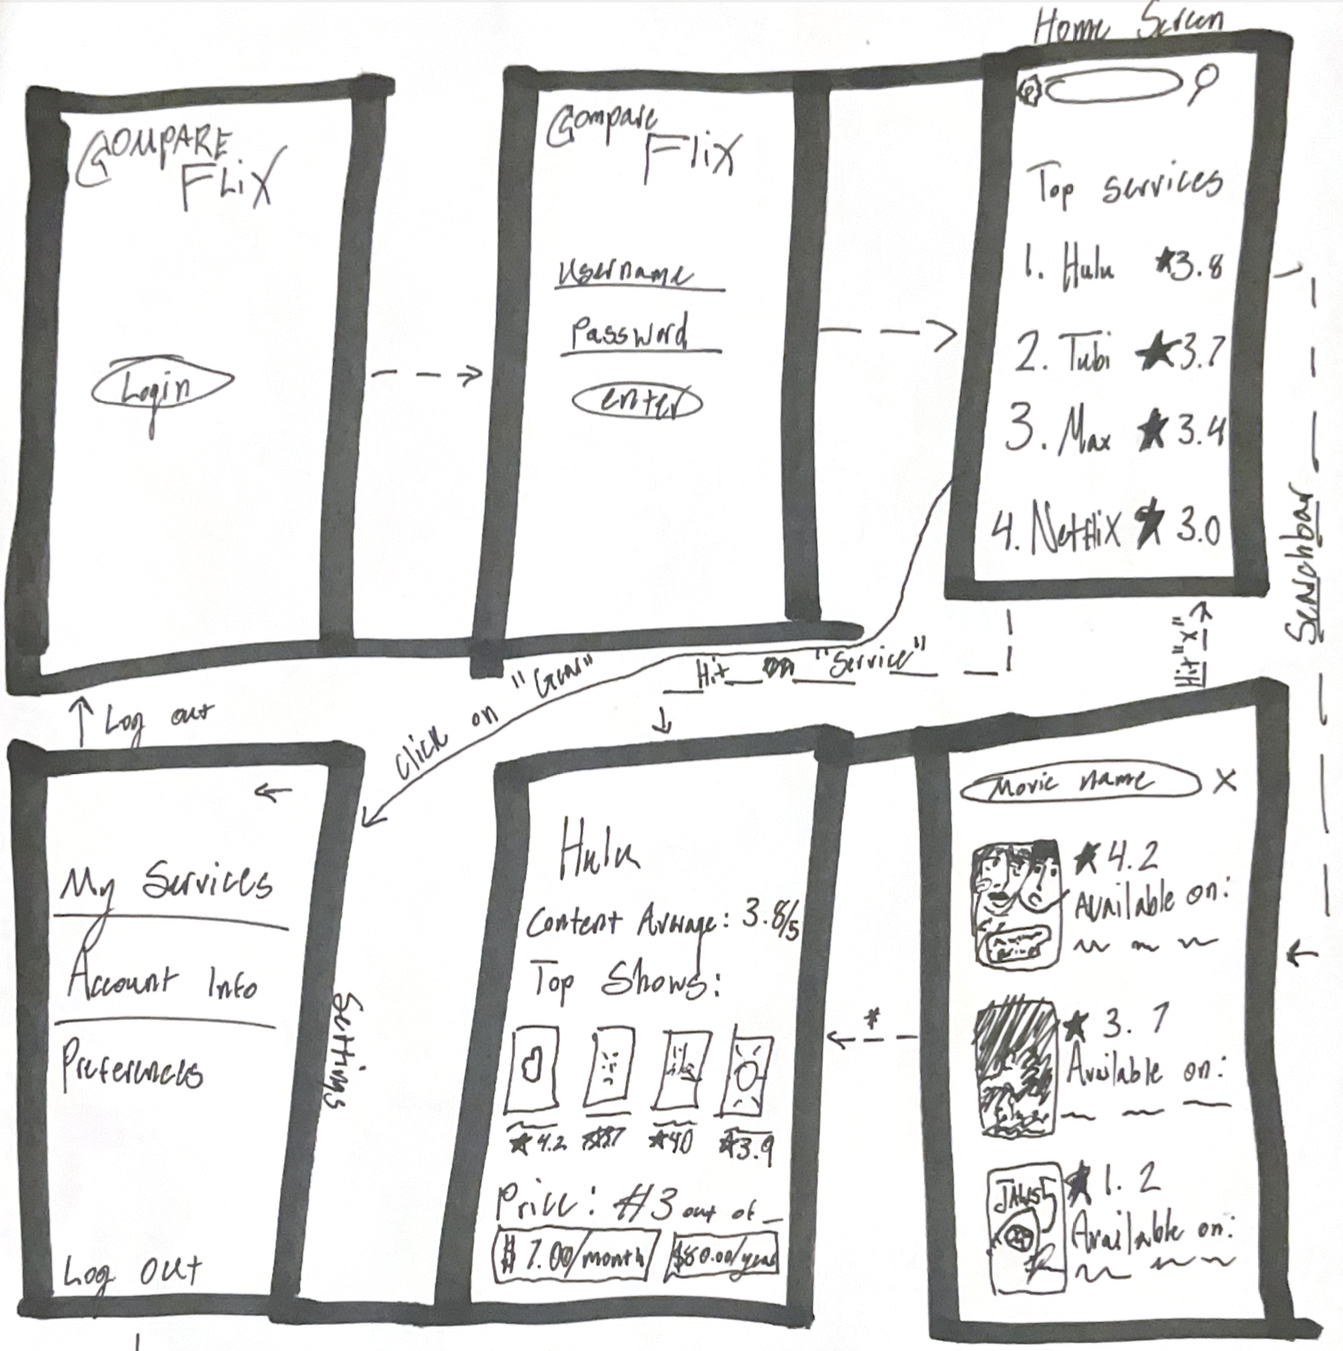 Home Screen
COMPARE
FLiX
Login
Compare
Flix
Username
Password
enter
Top services
1. Hulu ★3.8
2. Tubi ★3.7
3. Max ★3.4
4. Netflix ★3.0
Searchbar
Hit "x"
Click on "Gear"
Hit on "Service"
Log out
My Services
Account Info
Preferences
Log out
Settings
Hulu
Content Average: 3.8/5
Top Shows:
★4.2 ★4.0 ★3.9
Price: #3 out of _
$7.00/month $80.00/year
*
Movie name X
★4.2
Available on:
★3.7
Available on:
JAWS 5
★1.2
Available on: